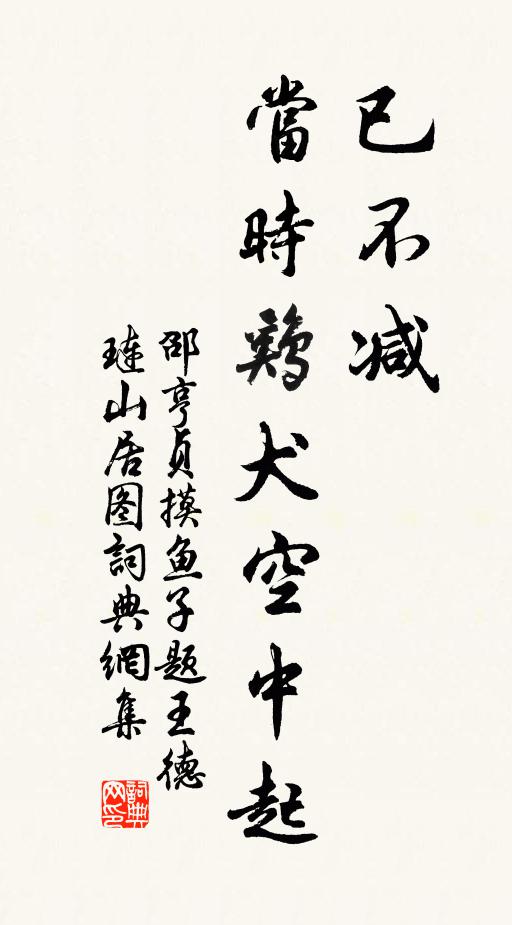 已不减
當時鷄犬空中起
邵亨貞摸鱼子题王德
璉山居图詞典網集
詞典
网印